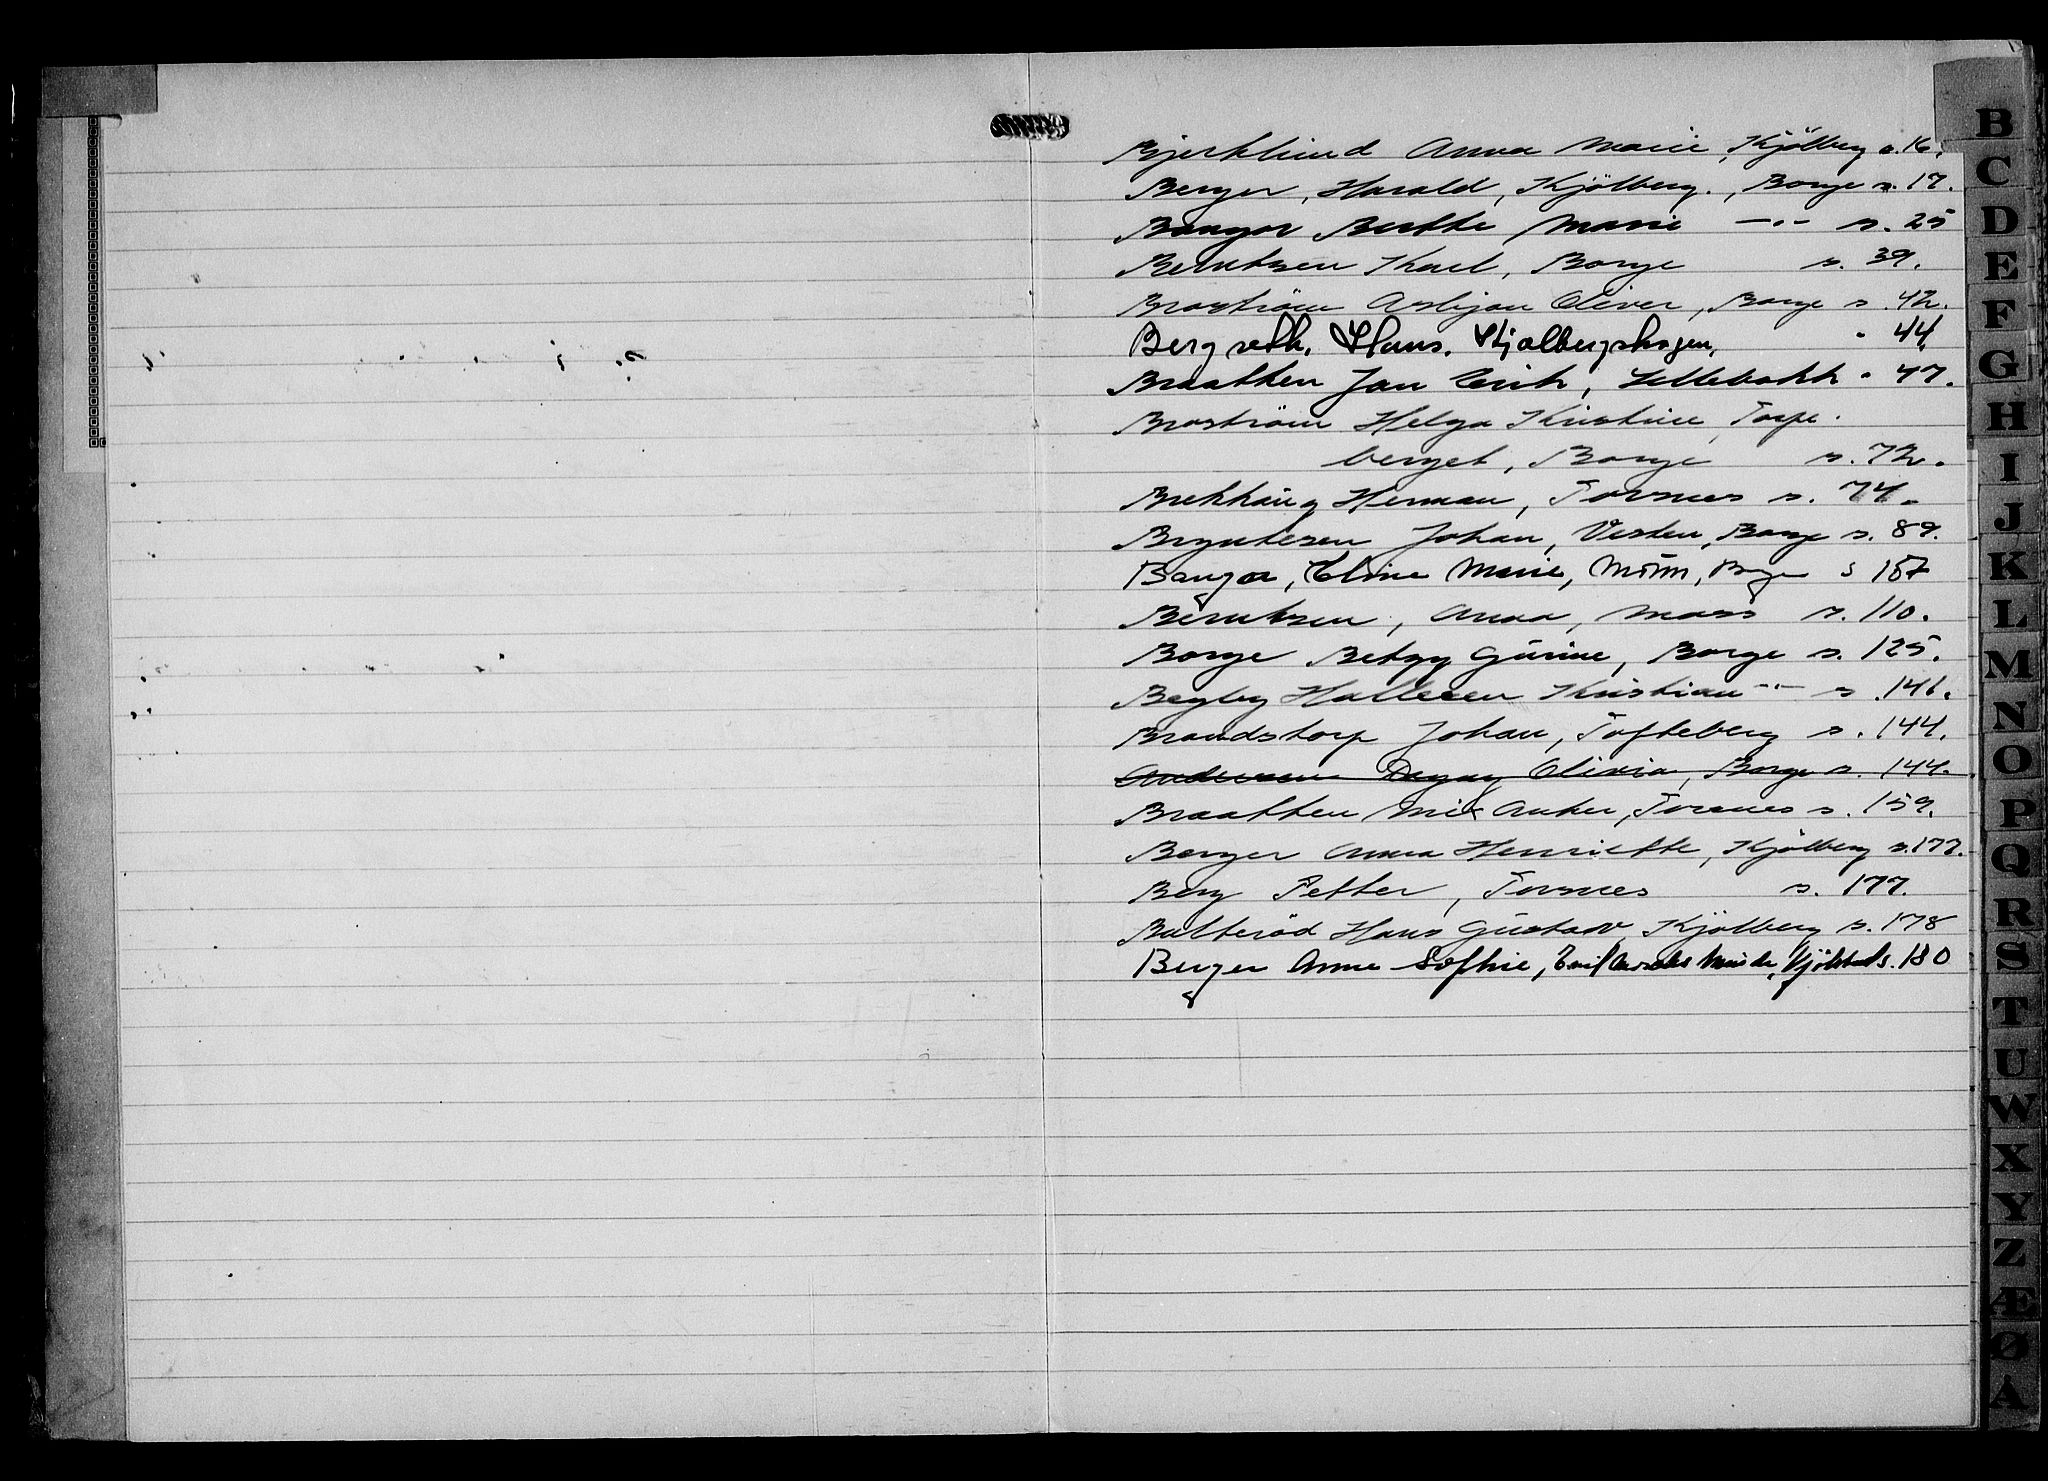 Bjerklund Anna Marie, Kjölberg s. 16.
Berger, Harald, Kjölberg., Borge s. 17.
Bangor Berthe Marie —"— s. 25
Berntsen Karl, Borge s. 39.
Broström Asbjørn Oliver, Borge s. 42.
Bergseth, Hans. Kjølbergskogen, " 44
Braathen Jan Erik, Lillebakk " 47.
Broström Helga Kristine, Torpe-
berget, Borge s. 72.
Brekkung Herman, Torsnes s. 74.
Bryntesen Johan, Vesten, Borge s. 89.
Bangor, Eline Marie, Borge s 107
Berntsen, Anna, Moss s. 110.
Borge Betzy Gurine, Borge s. 125.
Begby Hallesen Kristian —"— s. 141.
Brandstorp Johan, Tofteberg s. 144.
Andersen Dagny Olivia, Borge s. 144.
Braathen Anker, Torsnes s. 159.
Berger Anna Henriette, Kjölberg s. 177.
Berg Petter, Torsnes s. 177.
Butteröd Hans Gustav Kjölberg s. 178
Berger Anne Sofhie, Minde, s. 180
B
C
D
E
F
G
H
I
J
K
L
M
N
O
P
Q
R
S
T
U
W
X
Y
Z
Æ
Ø
Å